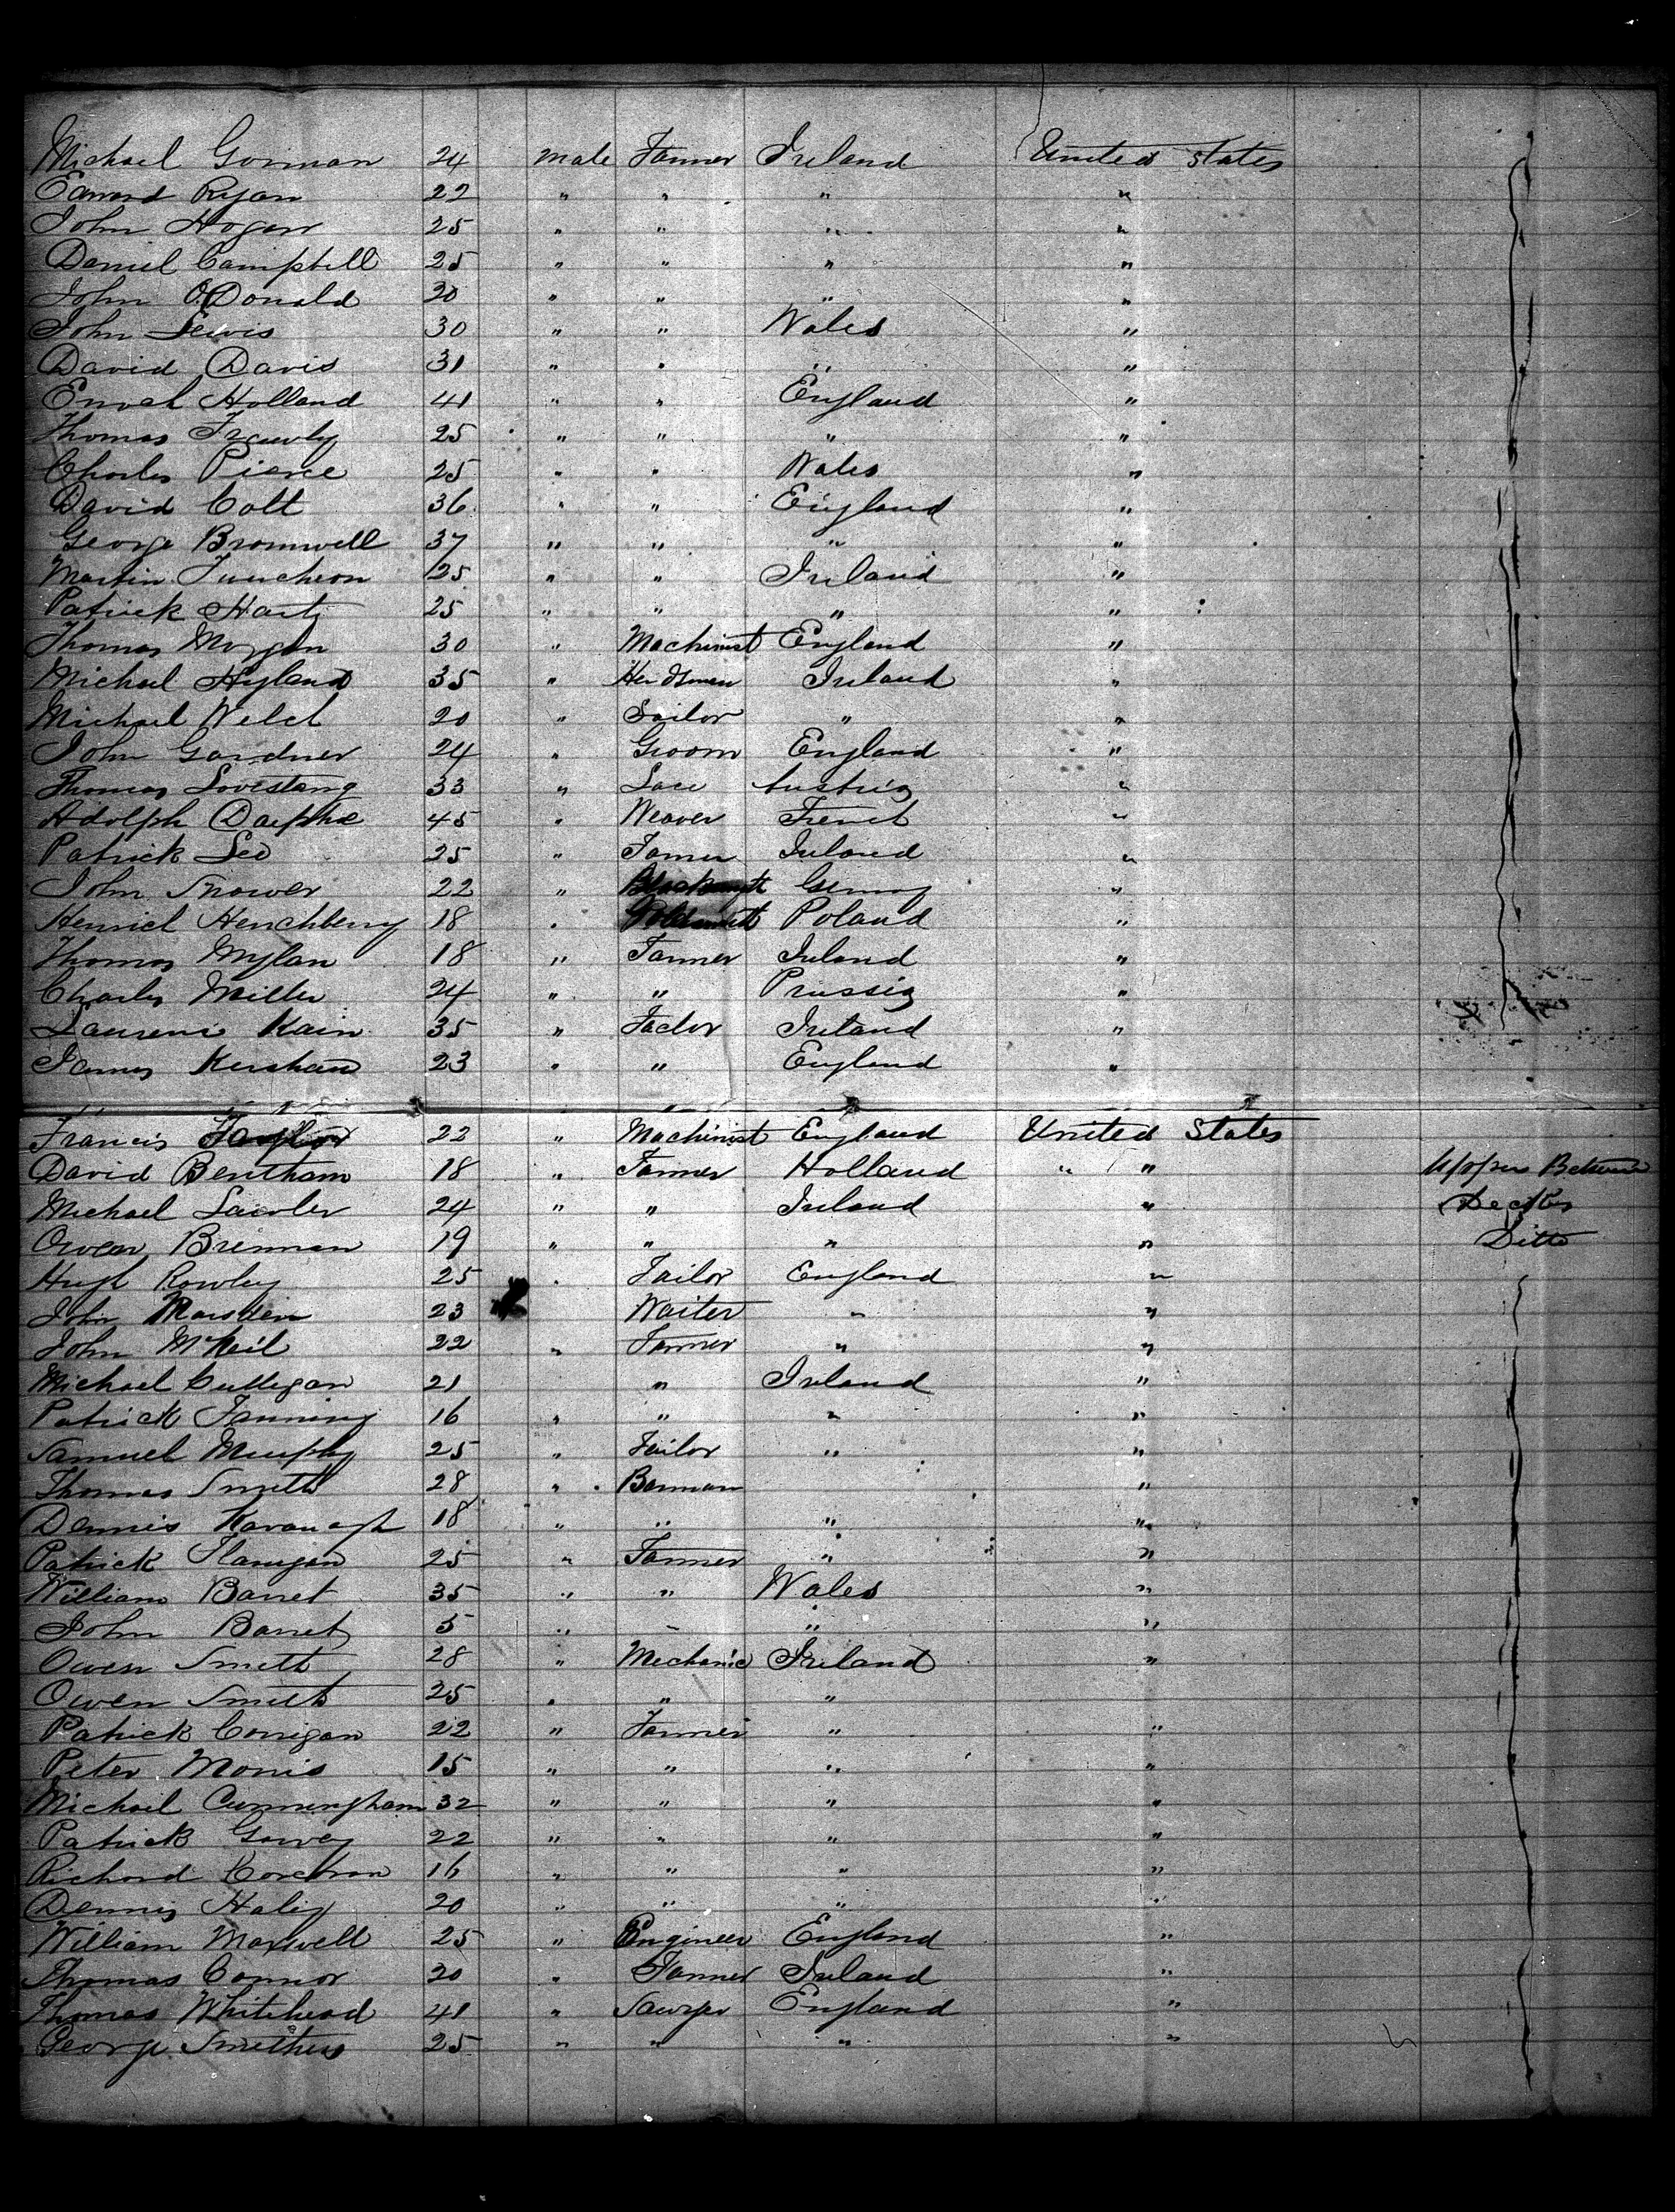 Michael Gorman 24 male Farmer Ireland United States
Edward Ryan 22 " " " "
John Hogan 25 " " " "
Daniel Campbell 25 " " " "
John O'Donald 20 " " " "
John Lewis 30 " " Wales "
David Davis 31 " " " "
Enoch Holland 41 " " England "
Thomas 25 " " " "
Charles Pierce 25 " " Wales "
David Colt 36 " " England "
George Bromwell 37 " " " "
Martin 25 " " Ireland "
Patrick Harty 25 " " " "
Thomas Morgan 30 " Machinist England "
Michael Hyland 35 " Herdsman Ireland "
Michael Welch 20 " Sailor " "
John Gardner 24 " Groom England "
Thomas 33 " Lace Austria "
Adolph 45 " Weaver French "
Patrick Leo 25 " Farmer Ireland "
John 22 " Blacksmith Germay "
Henrich Henchberg 18 " Goldsmith Poland "
Thomas Mylan 18 " Farmer Ireland "
Charles Miller 24 " " Prussia "
Laurence Kain 35 " Factor Ireland "
James Kershaw 23 " " England "
Francis Taylor 22 " Machinist England United States
David Bentham 18 " Farmer Holland " " Upper Between
Michael Lawler 24 " " Ireland " Decks
Owen Brennan 19 " " " " Ditto
Hugh Rowley 25 " Tailor England "
John Marsden 23 Waiter " "
John McNeil 22 " Farmer " "
Michael Culligan 21 " Ireland "
Patrick Fanning 16 " " " "
Samuel Murphy 25 " Tailor " "
Thomas Smith 28 " Barman "
Dennis Kavanagh 18 " " " "
Patrick Flanigan 25 " Farmer " "
William Barret 35 " " Wales "
John Barret 5 " " " "
Owen Smith 28 " Mechanic Ireland "
Owen Smith 25 " " "
Patrick Corrigan 22 " Farmer " "
Peter Morris 15 " " " "
Michael Cunningham 32 " " " "
Patrick 22 " " " "
Richard Corcoran 16 " " " "
Dennis Haley 20 " " " "
William Maxwell 25 " Engineer England "
Thomas Connor 20 " Farmer Ireland "
Thomas Whitehead 41 " Sawyer England "
George Smithers 25 " " " "